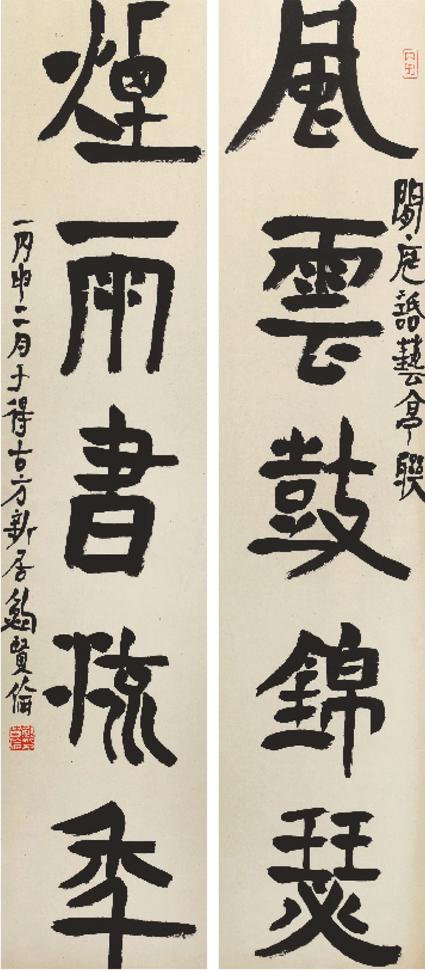 風雲鼓錦瑟
庭話藝亭聯
煙雨書流年
丙申二月于得古方新居